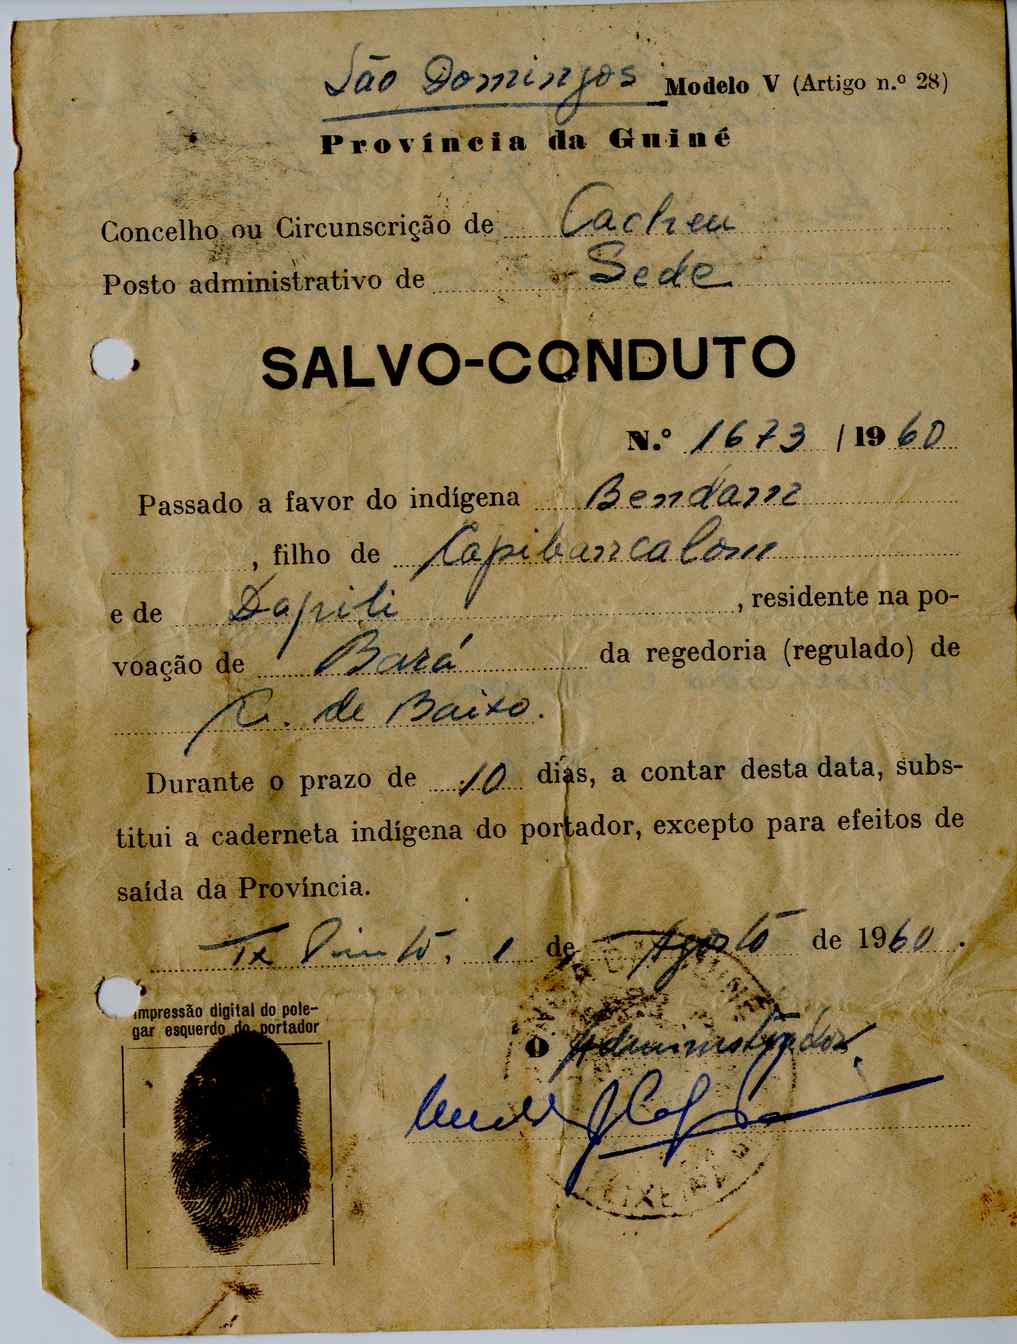 São Domingos Modelo V (Artigo n.º 28)
Província da Guiné
Concelho ou Circunscrição de Cacheu
Posto administrativo de Sede
SALVO-CONDUTO
N.º 1673 / 1960
Passado a favor do indígena Bendam
, filho de Capibancalom
e de Dapili , residente na po-
voação de Bará da regedoria (regulado) de
C. de Baixo.
Durante o prazo de 10 dias, a contar desta data, subs-
titui a caderneta indígena do portador, excepto para efeitos de
saída da Província.
Tx Pinto, 1 de Agosto de 1960.
Impressão digital do pole-
gar esquerdo do portador
O Administrador,